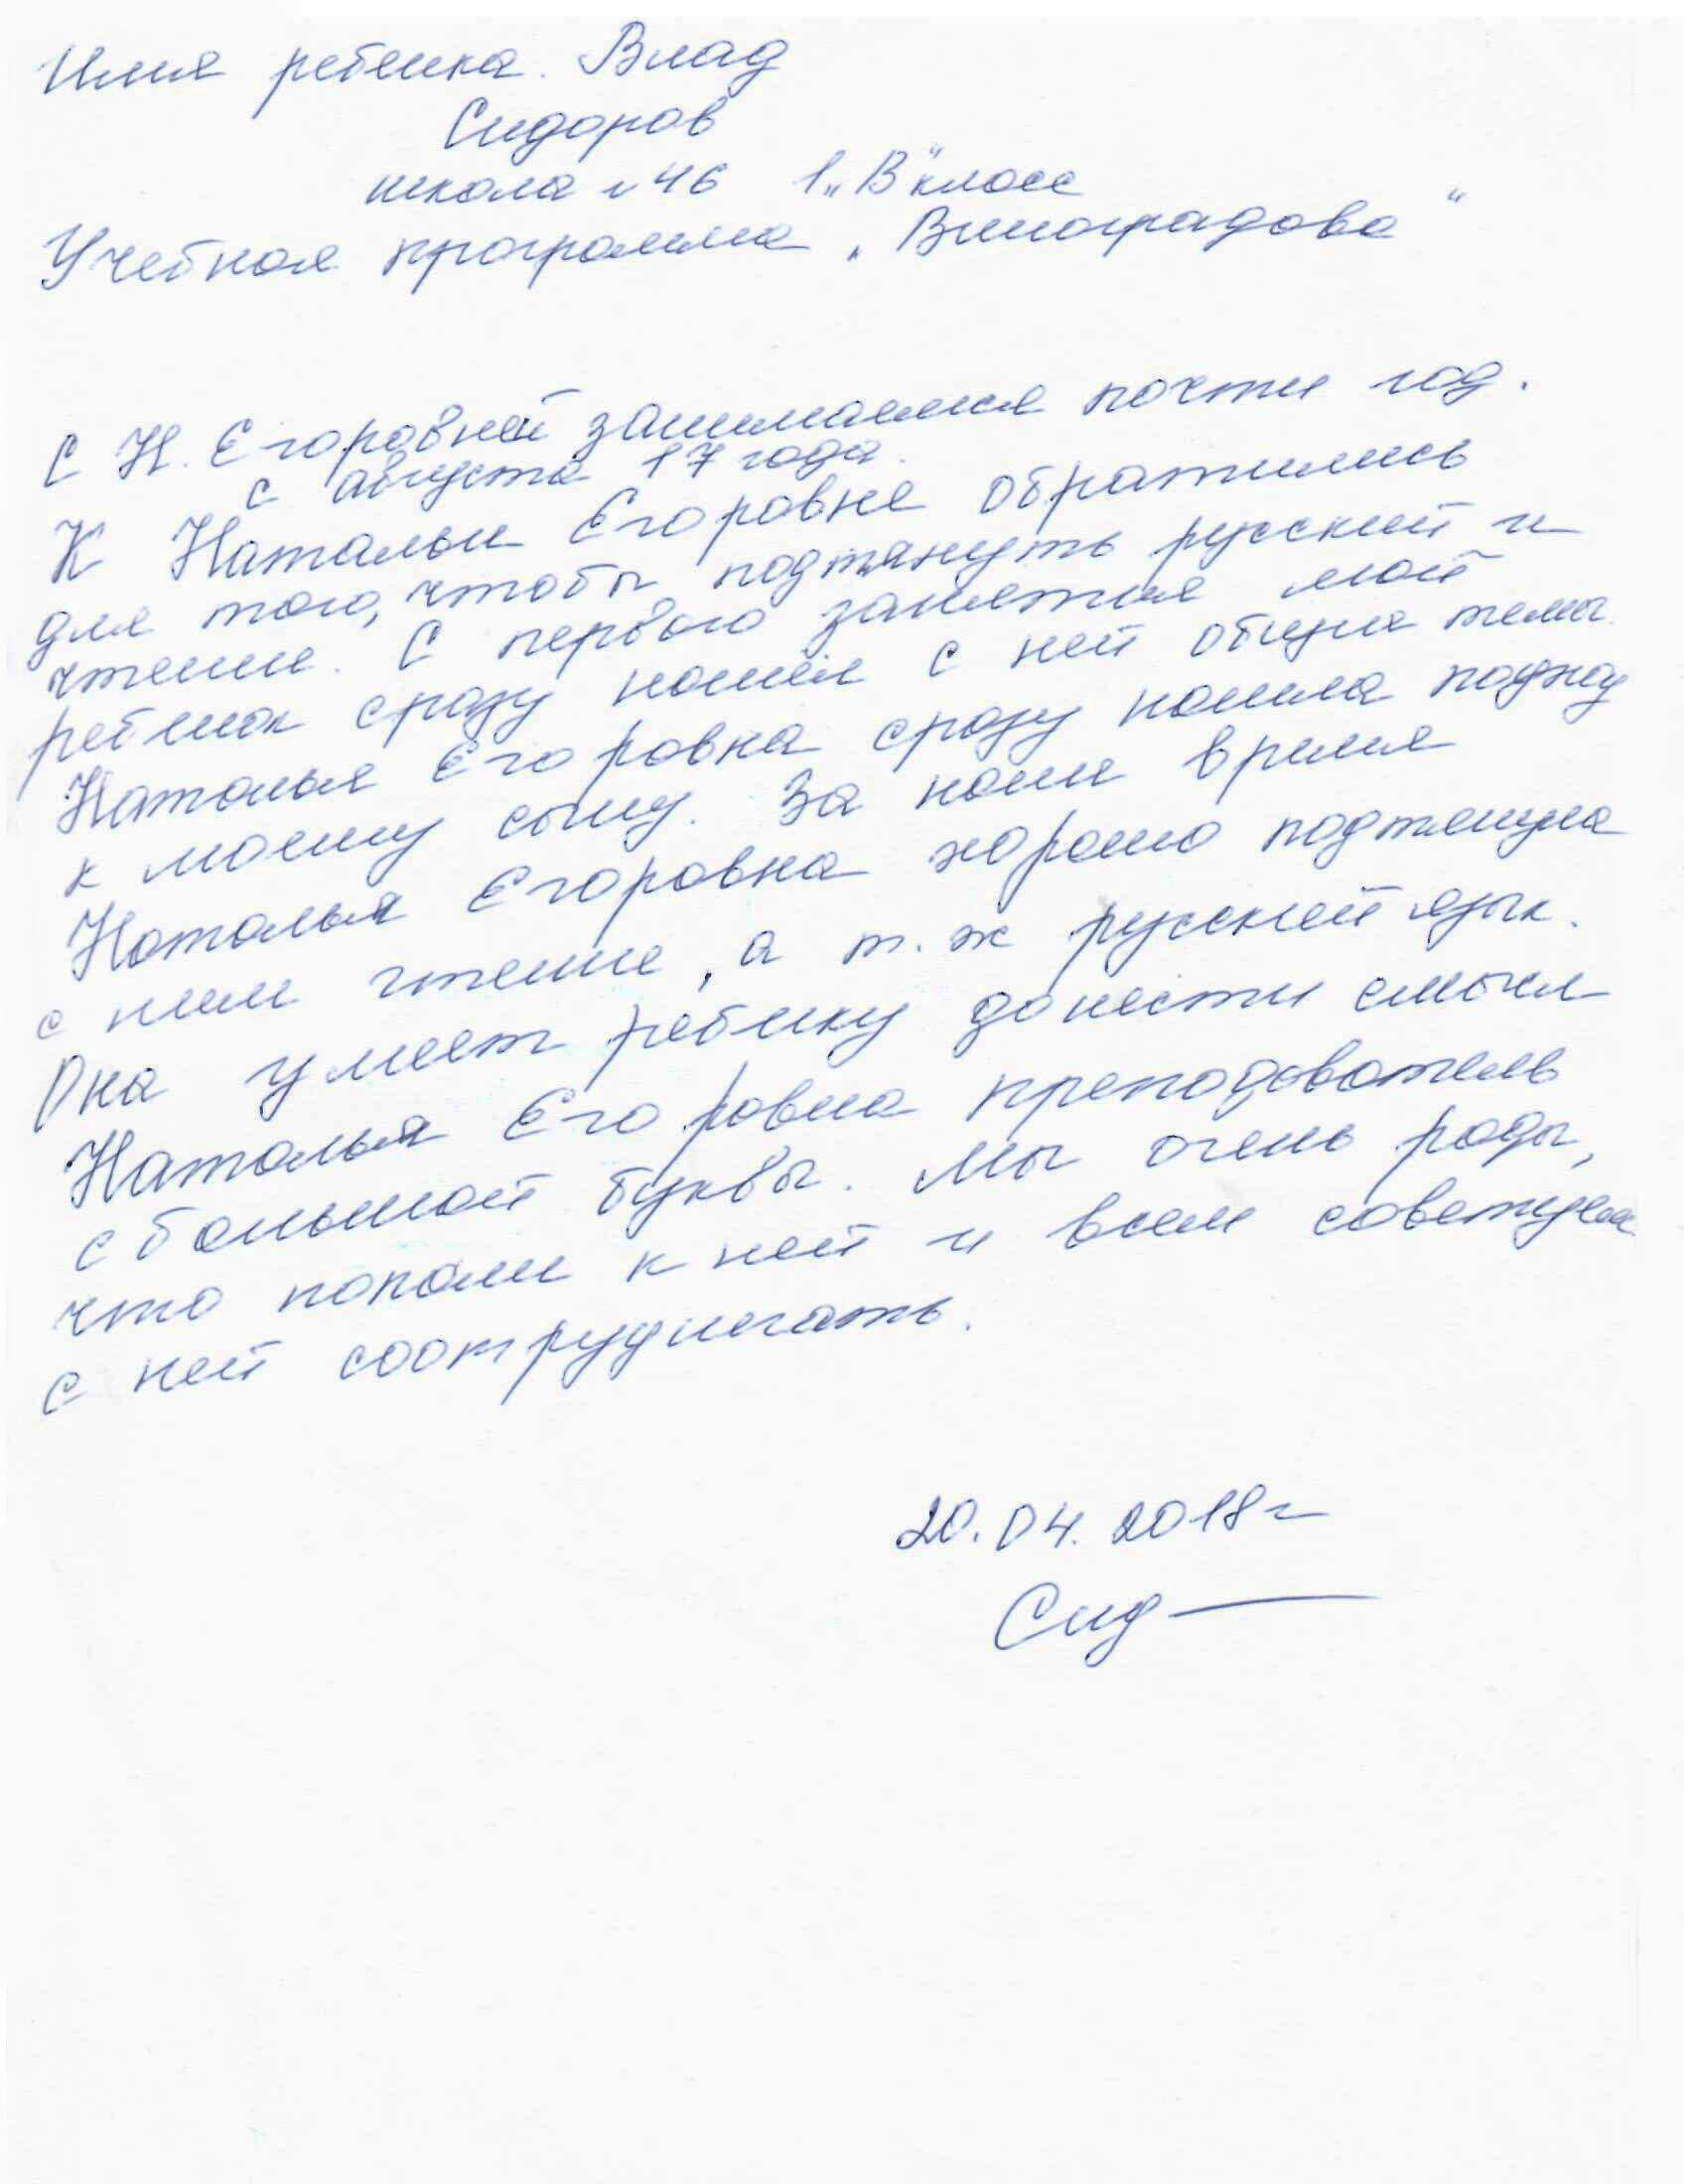 Имя ребенка. Влад
Сидоров
школа N 46 1 „В" класс
Учебная программа „Виноградова"
С Н. Егоровной занимаемся почти год.
с августа 17 года.
К Натальи Егоровне обратились
для того, чтобы подтянуть русский и
чтение. С первого занятия мой
ребенок сразу нашёл с ней общие темы.
Наталья Егоровна сразу нашла
к моему сыну. За наше время
Наталья Егоровна хорошо подтянула
с ним чтение, а т.ж русский язык.
Она умеет ребенку донести смысл
Наталья Егоровна преподователь
с большой буквы. Мы очень рады,
что попали к ней и всем советуем
с ней соотрудничать.
20.04.2018г
Сид